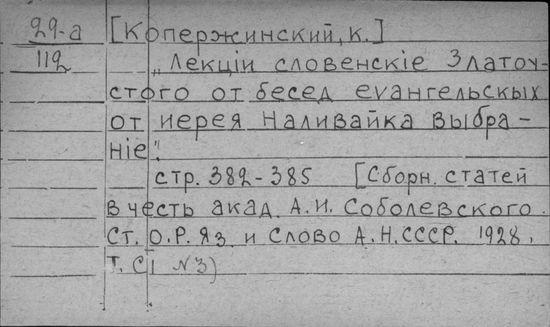 29-а [Копержинский, К.]
112 „Лекціи словенскіе Златоу-
стого от бесед еvангельскых
от иерея Наливайка выбра-
ніе".
стр. 382-385 [Сборн. статей
в честь акад. А.И. Соболевского.
Ст. О.Р.Яз. и Слово А.Н.СССР. 1928,
т. CI №3)